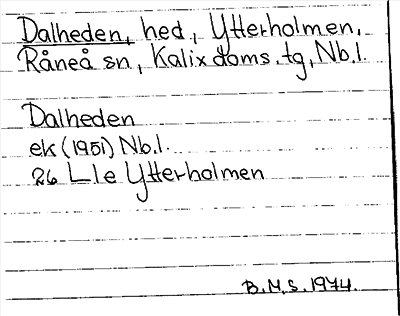 Dalheden, hed, Ytterholmen,
Råneå sn, Kalix doms. tg, Nb.l.
Dalheden
ek (1951) Nb.l.
26 L1e Ytterholmen
B.M.S. 1974.